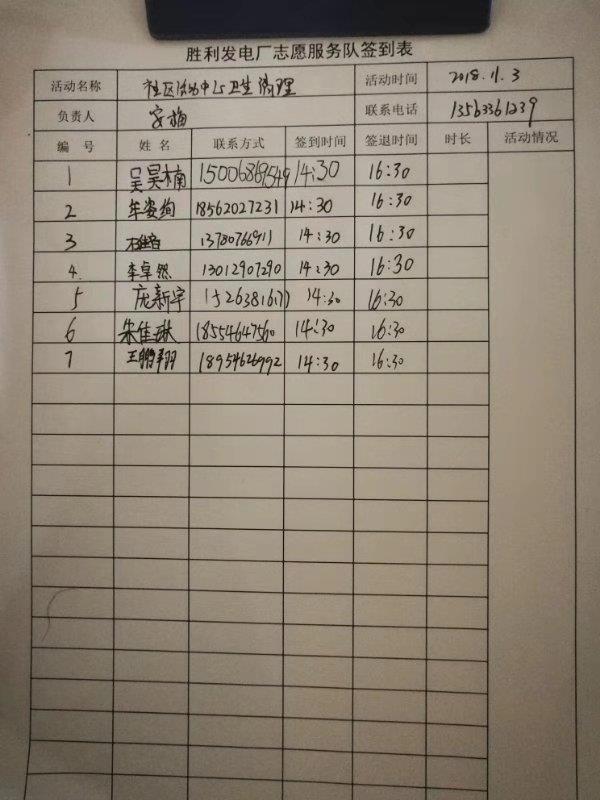 胜利发电厂志愿服务队签到表
活动名称 社区活动中心卫生清理 活动时间 2018.11.3
负责人 安梅 联系电话 13563361239
编 号 姓 名 联系方式 签到时间 签退时间 时长 活动情况
1 吴昊楠 15006869549 14:30 16:30
2 牟姿绚 18562027231 14:30 16:30
3 13780766911 14:30 16:30
4. 李卓然 13012907290 14:30 16:30
5 庞新宇 14:30 16:30
6 朱佳琳 18554647560 14:30 16:30
7 王鹏翔 18954626992 14:30 16:30